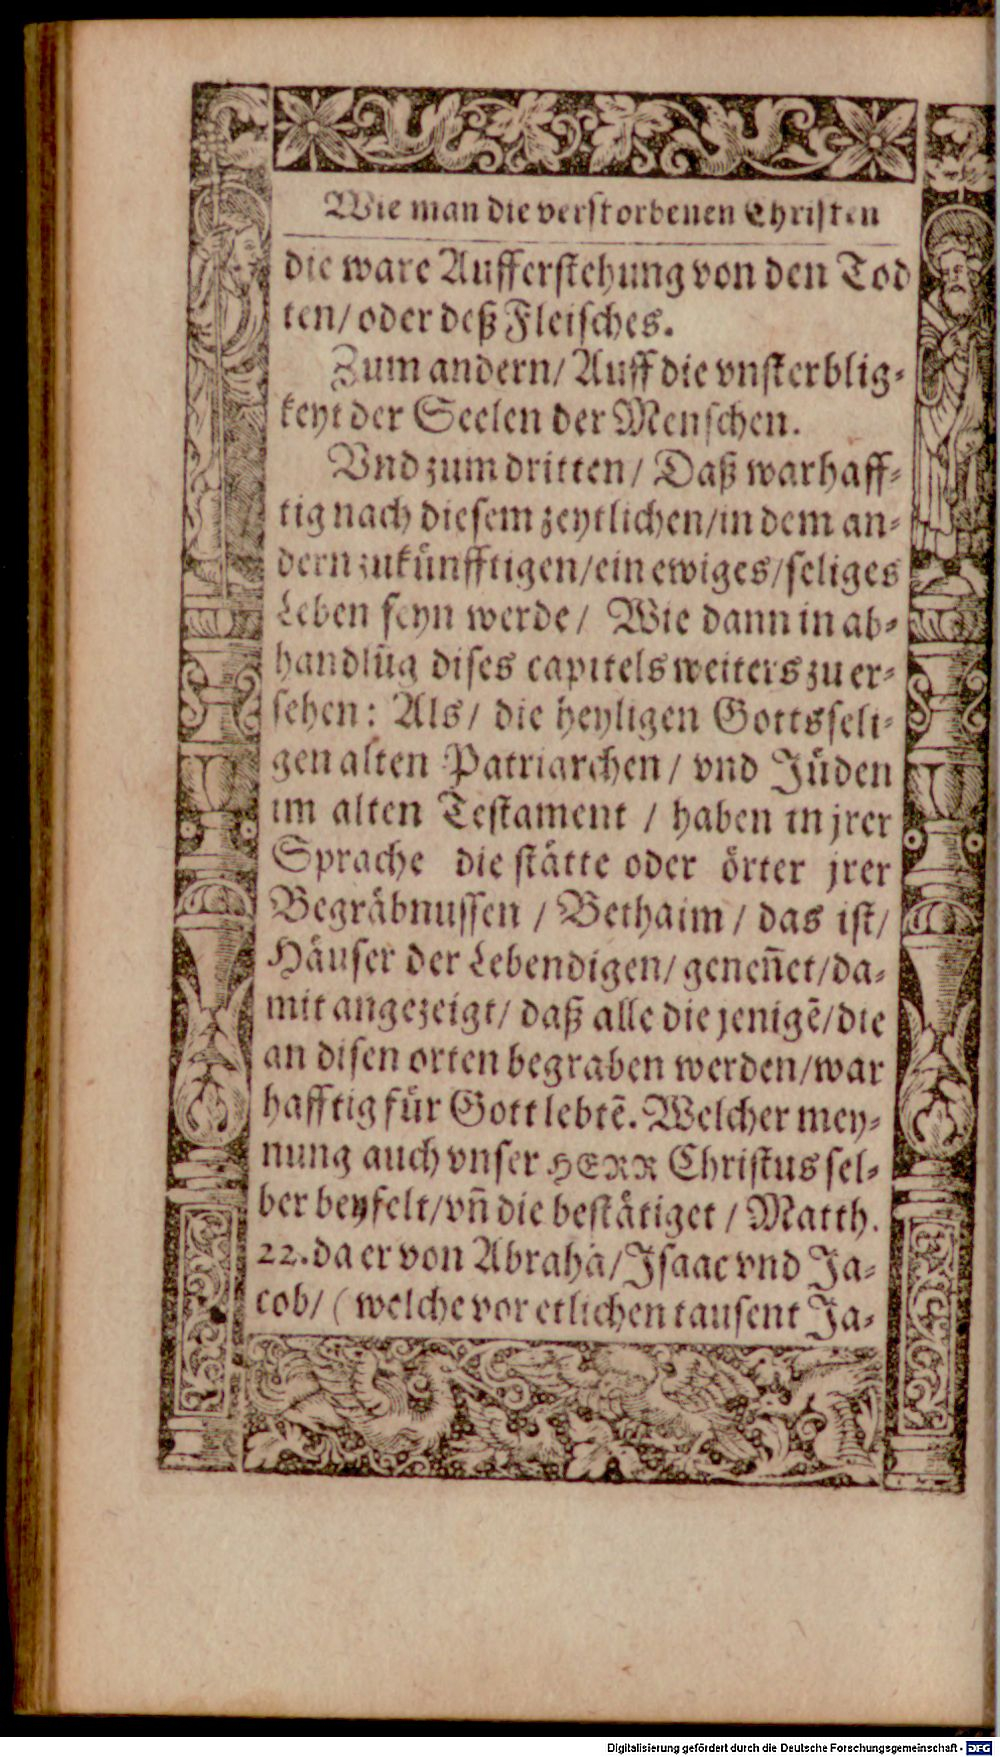 Wie man die verstorbenen Christen
die ware Aufferstehung von den Tod
ten/ oder deß Fleisches.
Zum andern/ Auff die vnsterblig-
keyt der Seelen der Menschen.
Vnd zum dritten/ Daß warhaff-
tig nach diesem zeytlichen/in dem an-
dern zukünfftigen/ein ewiges/seliges
Leben seyn werde/ Wie dann in ab-
handlūg dises capitels weiters zu er-
sehen: Als/ die heyligen Gottsseli-
gen alten Patriarchen/ vnd Jüden
im alten Testament / haben in jrer
Sprache die stätte oder örter jrer
Begräbnussen / Bethaim / das ist/
Häuser der Lebendigen/ geneñet/da-
mit angezeigt/ daß alle die jenigē/die
an disen orten begraben werden/war
hafftig für Gott lebtē. Welcher mey-
nung auch vnser HERR Christus sel-
ber beyfelt/vñ die bestätiget / Matth.
22. da er von Abrahā/Isaac vnd Ja-
cob/ ( welche vor etlichen tausent Ja-
Digitalisierung gefördert durch die Deutsche Forschungsgemeinschaft - DFG